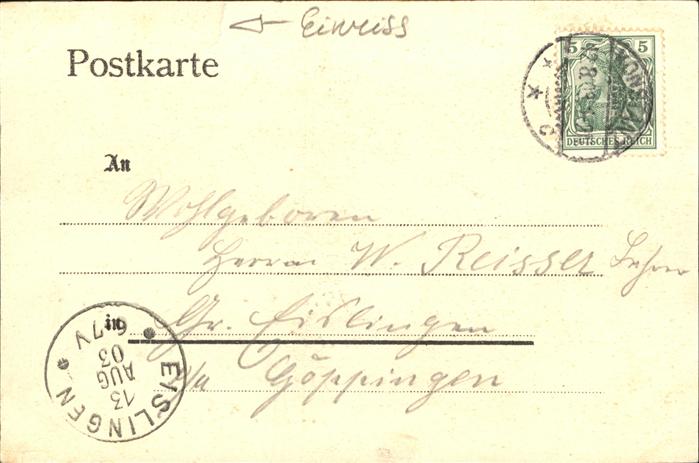 Einriss
Postkarte
5 5
DEUTSCHES REICH
An
Wohlgeboren
Herrn W. Reisser Lehrer
in Gr. Eislingen
a/a Göppingen
EISLINGEN
13
AUG
03
6-7V